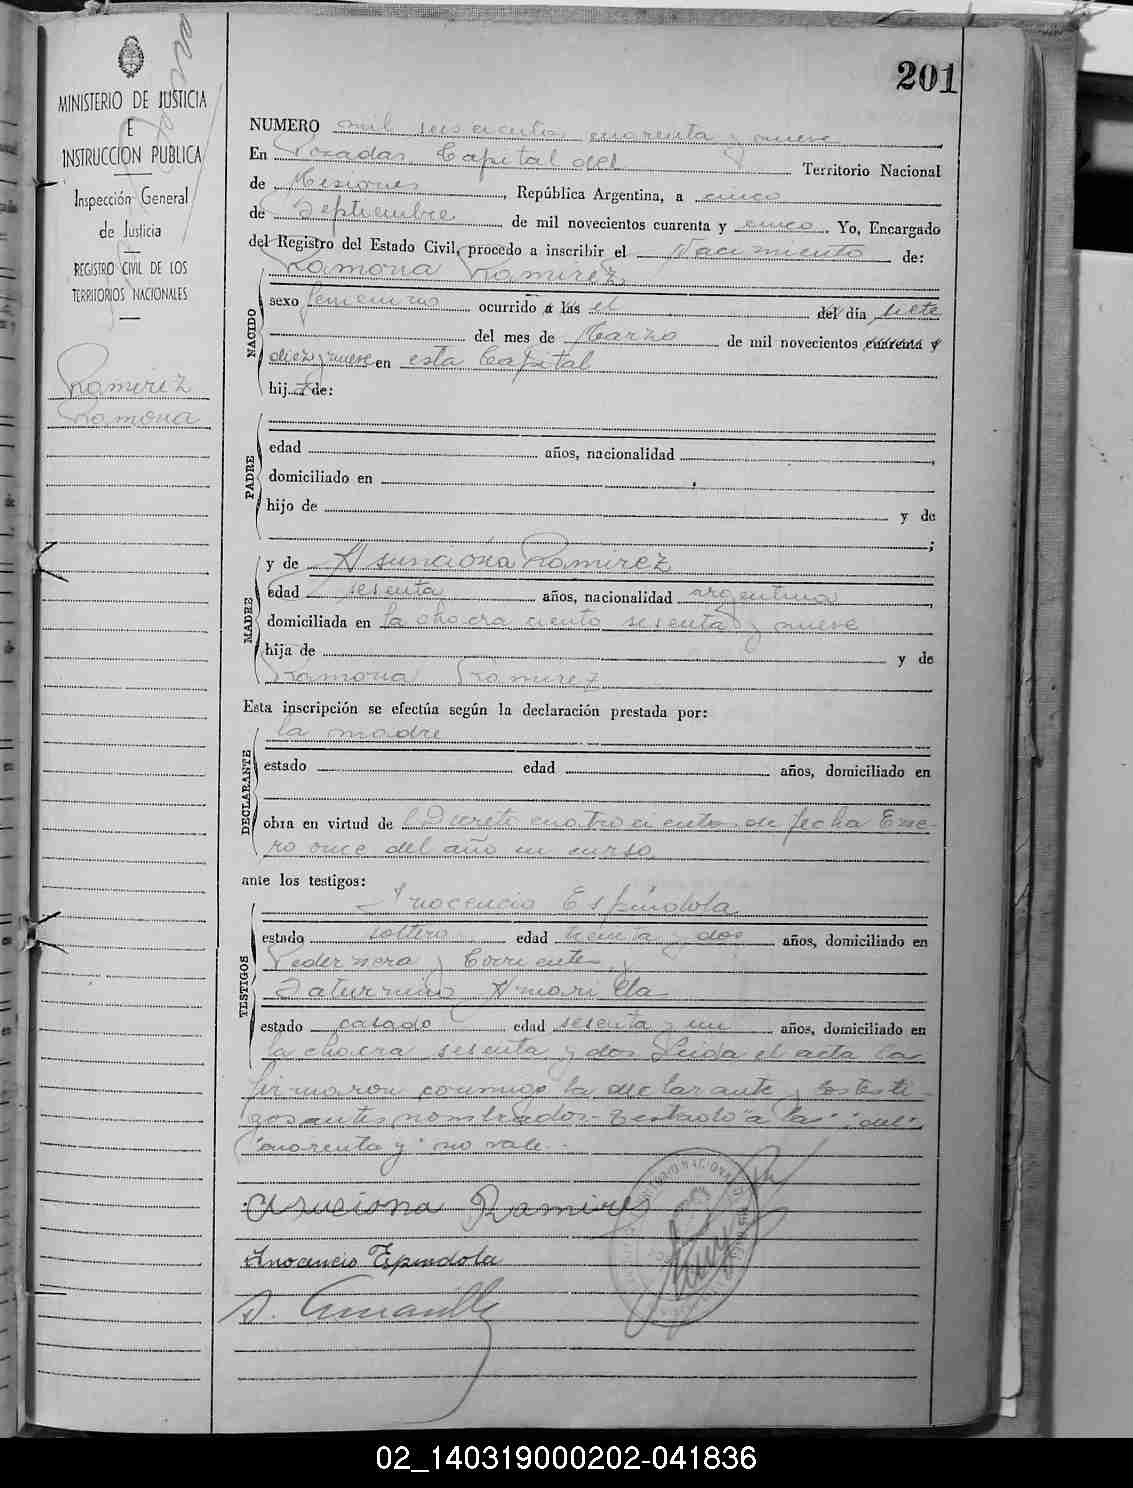 201
MINISTERIO DE JUSTICIA
E
INSTRUCCION PUBLICA
Inspección General
de Justicia
REGISTRO CIVIL DE LOS
TERRITORIOS NACIONALES
Ramirez
Ramona
NUMERO mil seiscientos cuarenta y nueve
En Posadas Capital del Territorio Nacional
de Misiones, República Argentina, a cinco
de Septiembre de mil novecientos cuarenta y cinco. Yo, Encargado
del Registro del Estado Civil, procedo a inscribir el Nacimiento de:
Ramona Ramirez
NACIDO
sexo femenino ocurrido a las el del día siete
del mes de Marzo de mil novecientos cuarenta y
diez y nueve en esta Capital
hij a de:
PADRE
edad años, nacionalidad
domiciliado en
hijo de y de
;
MADRE
y de Asunciona Ramirez
edad sesenta años, nacionalidad argentina,
domiciliada en la chacra ciento sesenta y nueve
hija de y de
Ramona Ramirez
Esta inscripción se efectúa según la declaración prestada por:
la madre
DECLARANTE
estado edad años, domiciliado en
obra en virtud de l Decreto cuatrocientos de fecha Ene-
ro once del año en curso
ante los testigos:
TESTIGOS
Inocencio Espíndola
estado soltero edad treinta y dos años, domiciliado en
Pedernera y Corrientes y
Saturnino Amarilla
estado casado edad sesenta y un años, domiciliado en
la chacra sesenta y dos Leida el acta la
firmaron conmigo la declarante y los testi-
gos antes nombrados - Testado "a la" "del"
"cuarenta y" no vale.-
Asuciona Ramires
Inocencio Espindola
S. Amarilla
02_140319000202-041836